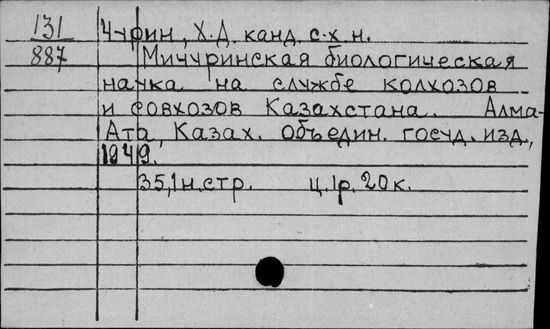 131
887
Чурин, Х.Д. канд. с-х н.
Мичуринская биологическая
наука на службе колхозов
и совхозов Казахстана. Алма-
Ата, Казах. объедин. госуд. изд.,
1949.
35,1 н. стр. ц. 1р. 20 к.